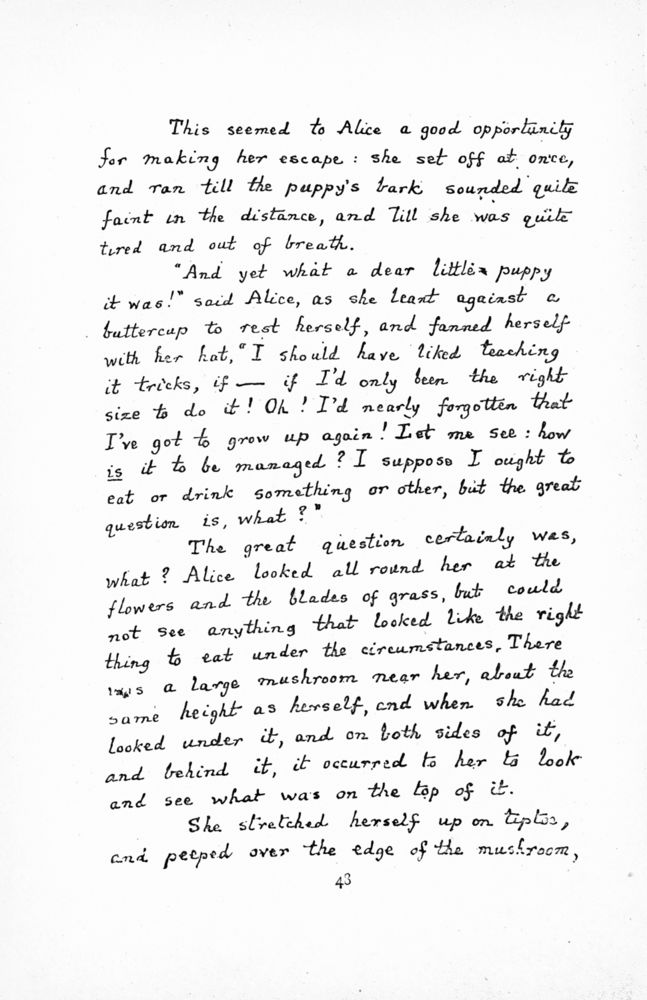 This seemed to Alice a good opportunity
for making her escape : she set off at once,
and ran till the puppy's bark sounded quite
faint in the distance, and till she was quite
tired and out of breath.
"And yet what a dear little puppy
it was!" said Alice, as she leant against a
buttercup to rest herself, and fanned herself
with her hat, "I should have liked teaching
it tricks, if — if I'd only been the right
size to do it! Oh! I'd nearly forgotten that
I've got to grow up again! Let me see : how
is it to be managed? I suppose I ought to
eat or drink something or other, but the great
question is, what?"
The great question certainly was,
what? Alice looked all round her at the
flowers and the blades of grass, but could
not see anything that looked like the right
thing to eat under the circumstances. There
was a large mushroom near her, about the
same height as herself, and when she had
looked under it, and on both sides of it,
and behind it, it occurred to her to look
and see what was on the top of it.
She stretched herself up on tiptoe,
and peeped over the edge of the mushroom,
43